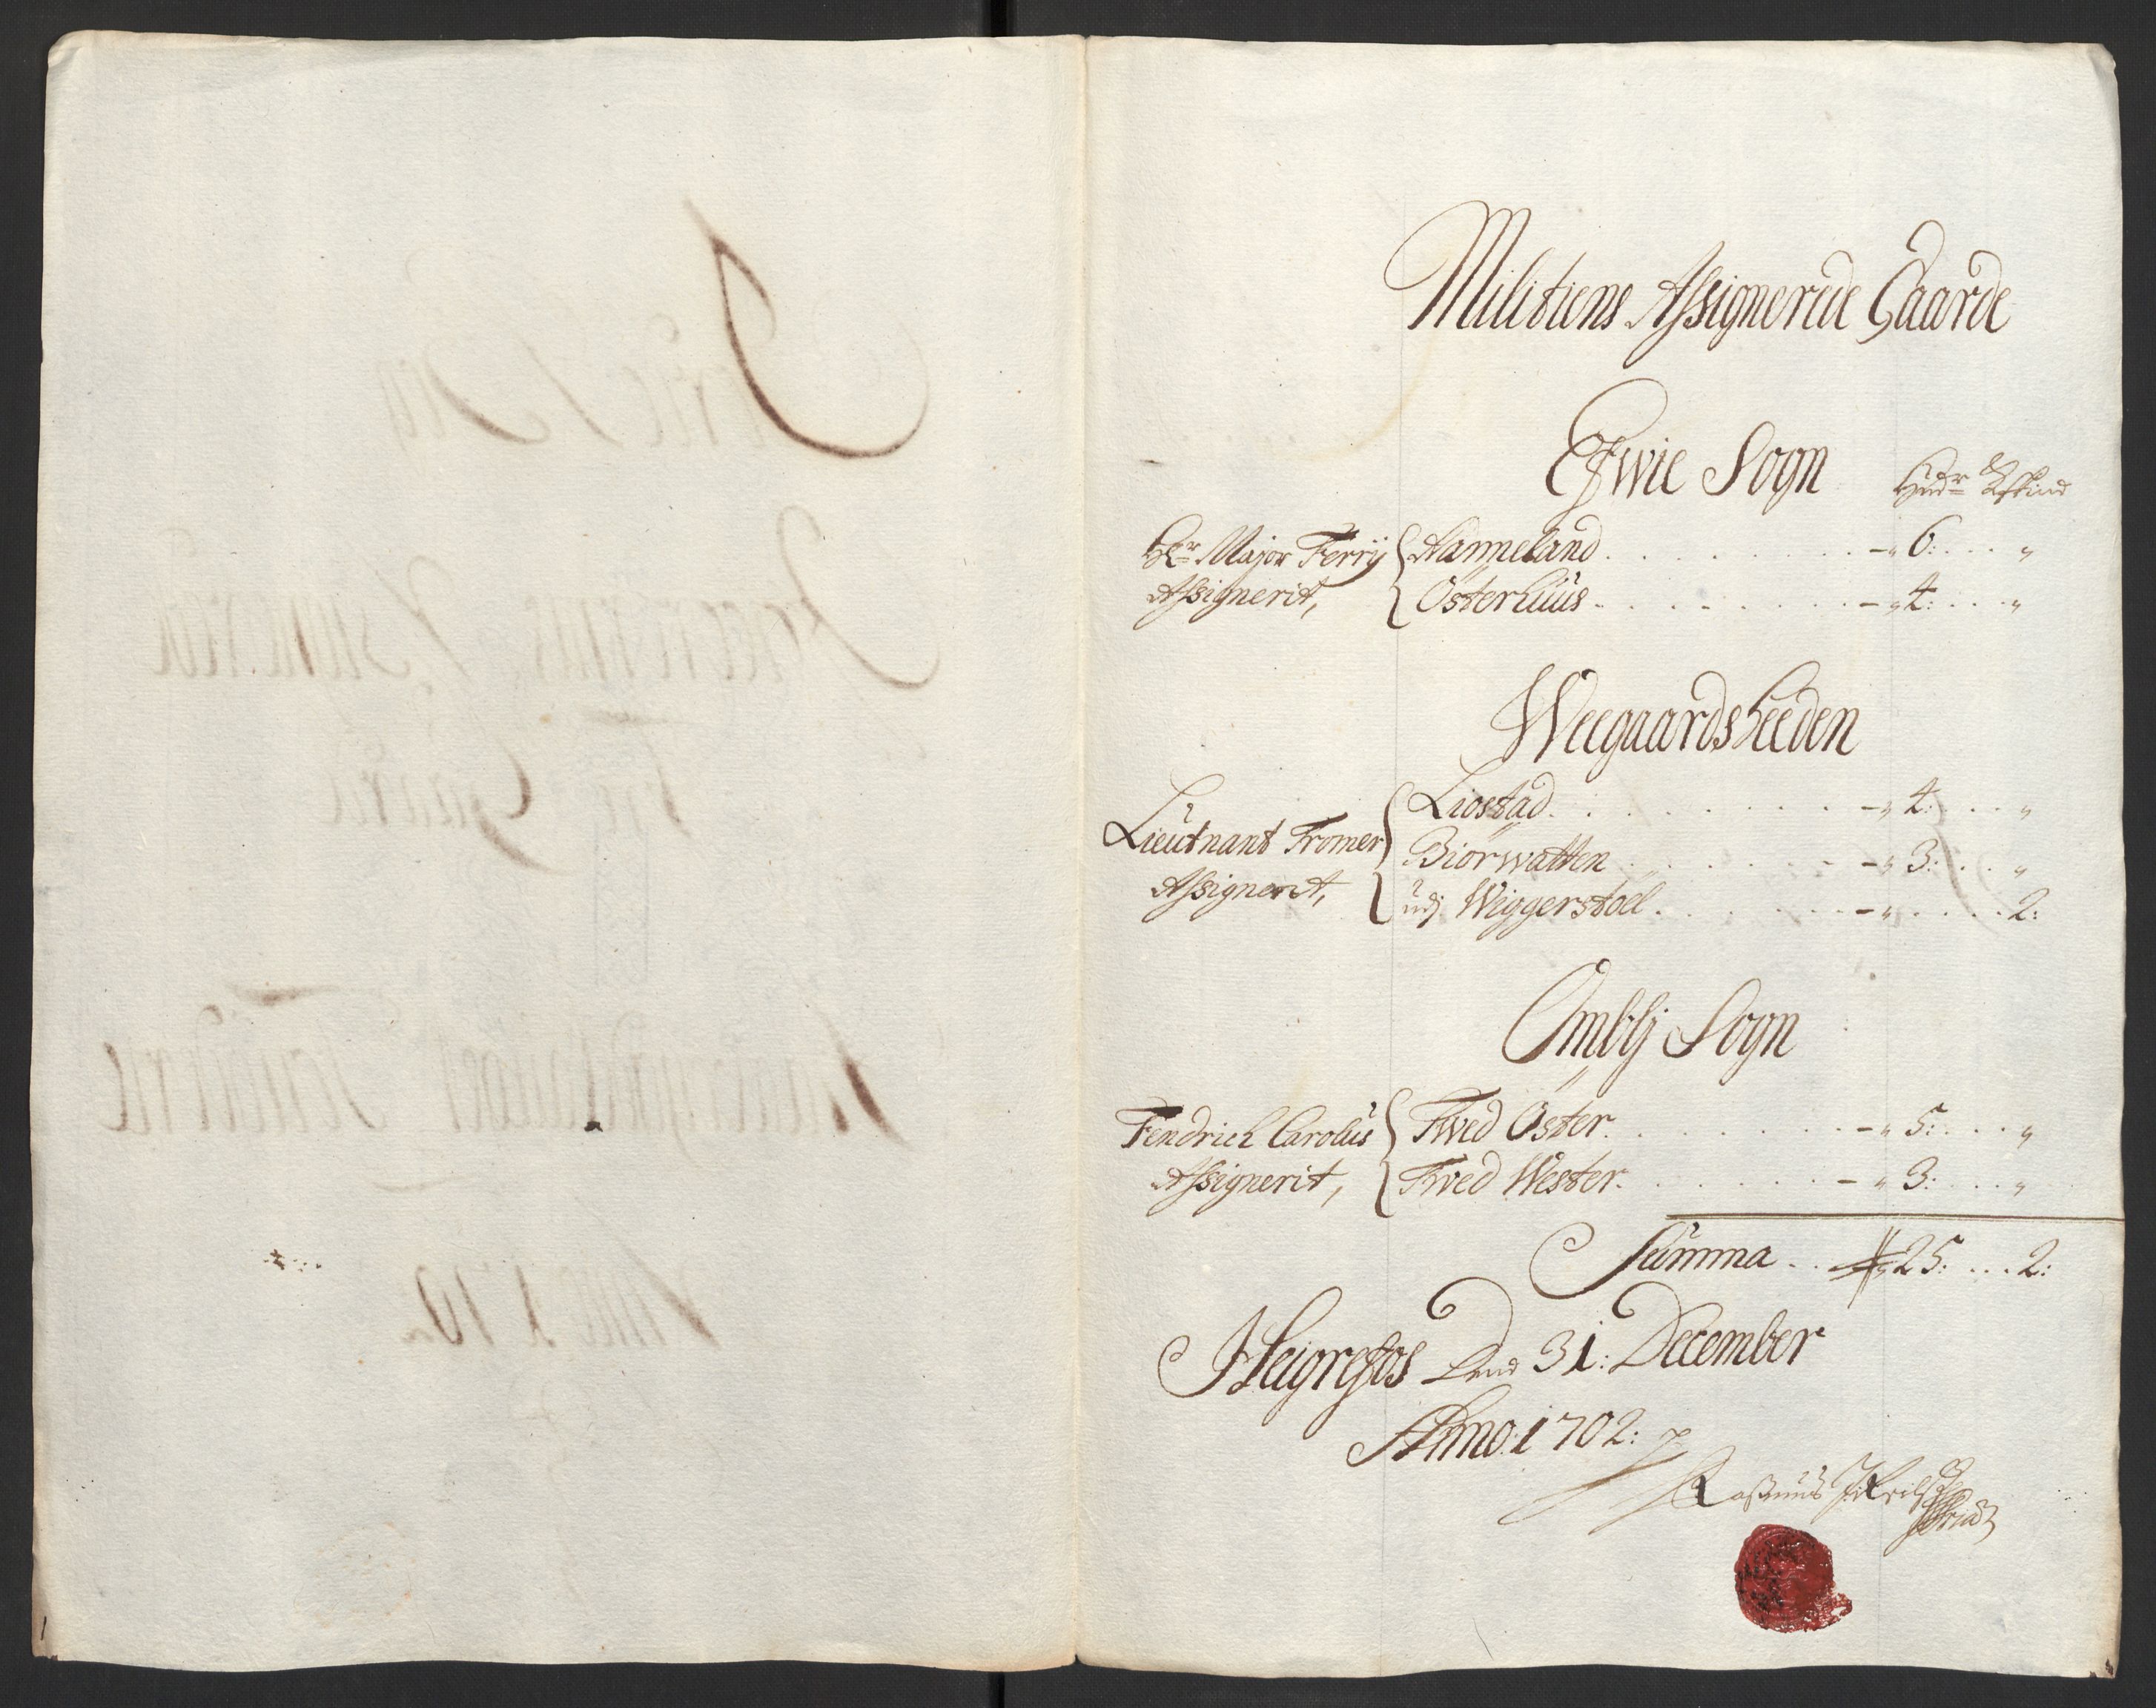 Militiens Assignerede Gaarde
Efwie Sogn Hudr Kfskind
Hr Major Ferrij Assignerit, { Hanneland . . . . . . . . -„ 6: . . . „
Österhuus . . . . . . . . -„ 4: . . . „
Weegaardsheeden
Lieutnant Fromer Assignerit, { Liostad . . . . . . . . -„ 4: . . . „
Biorwatten . . . . . . . -„ 3: . . . „
udj Wiggerstoel . . . . . . -„ . . . . 2:
Omblj Sogn
Fendrich Carolus Assignerit, { Twed Öster . . . . . . . -„ 5: . . . „
Twed Wester . . . . . . . -„ 3: . . . „
Summa . . 25: . . . 2:
Heigrefos Dend 31: December
Anno: 1702:
Rasmus